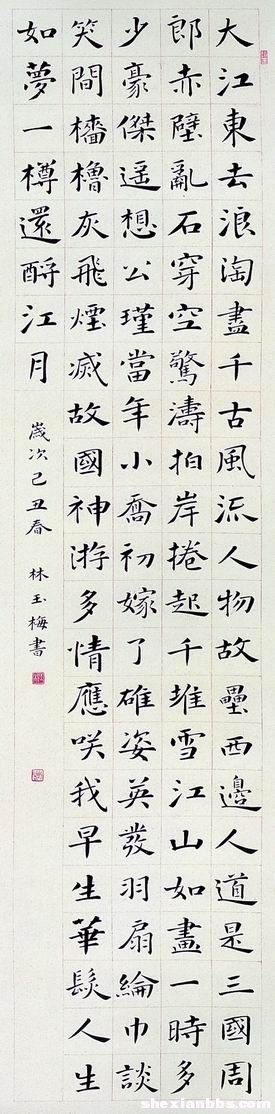 大江東去浪淘盡千古風流人物故壘西邊人道是三國周
郎赤壁亂石穿空驚濤拍岸捲起千堆雪江山如畫一時多
少豪傑遥想公瑾當年小喬初嫁了雄姿英發羽扇綸巾談
笑間檣櫓灰飛煙滅故國神游多情應咲我早生華髮人生
如夢一樽還酹江月
歲次己丑春 林玉梅書
shexianbbs.com